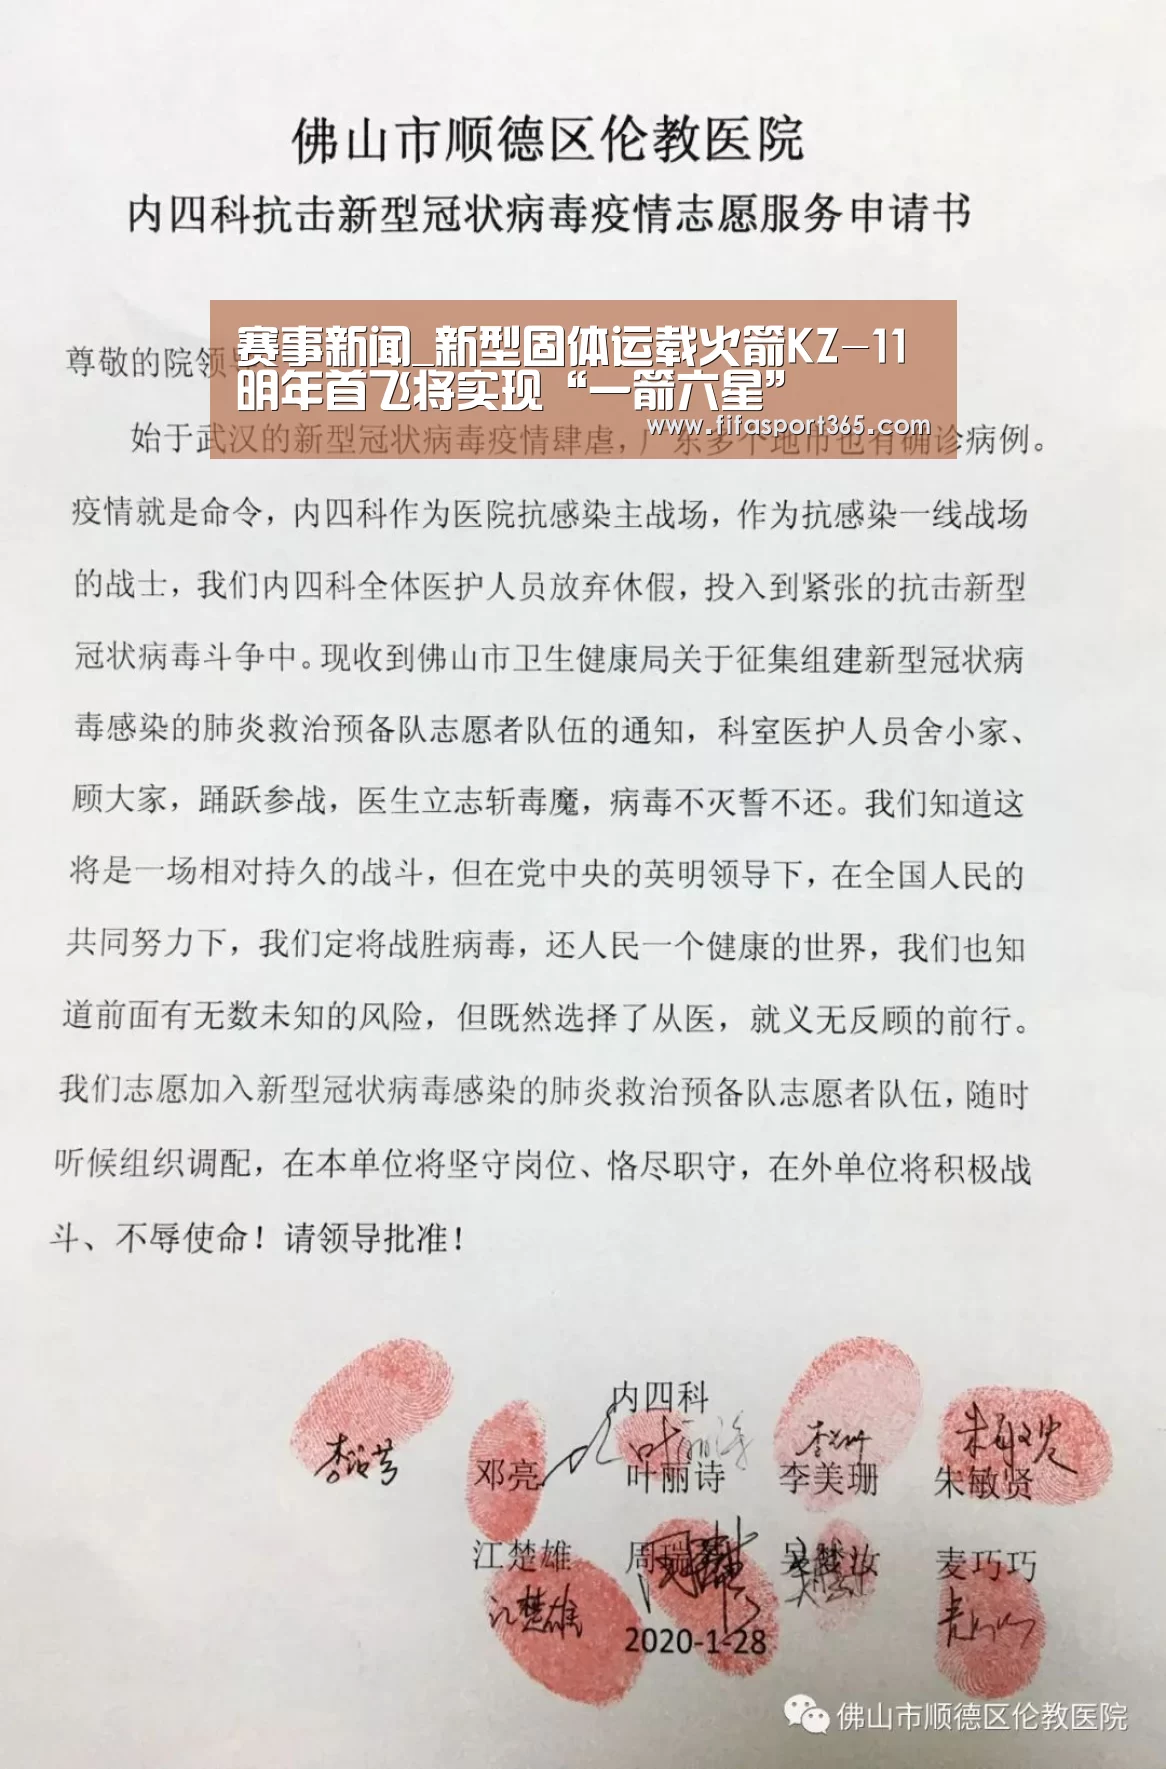 佛山市顺德区伦教医院
内四科抗击新型冠状病毒疫情志愿服务申请书
赛事新闻_新型固体运载火箭KZ-11
明年首飞将实现“一箭六星”
www.fifasport365.com
尊敬的院领导
始于武汉的新型冠状病毒疫情肆虐，广东多个地市也有确诊病例。
疫情就是命令，内四科作为医院抗感染主战场，作为抗感染一线战场
的战士，我们内四科全体医护人员放弃休假，投入到紧张的抗击新型
冠状病毒斗争中。现收到佛山市卫生健康局关于征集组建新型冠状病
毒感染的肺炎救治预备队志愿者队伍的通知，科室医护人员舍小家、
顾大家，踊跃参战，医生立志斩毒魔，病毒不灭誓不还。我们知道这
将是一场相对持久的战斗，但在党中央的英明领导下，在全国人民的
共同努力下，我们定将战胜病毒，还人民一个健康的世界，我们也知
道前面有无数未知的风险，但既然选择了从医，就义无反顾的前行。
我们志愿加入新型冠状病毒感染的肺炎救治预备队志愿者队伍，随时
听候组织调配，在本单位将坚守岗位、恪尽职守，在外单位将积极战
斗、不辱使命！请领导批准！
内四科
叶丽诗 李美珊 朱敏贤
邓亮 叶丽诗 李美珊 朱敏贤
江楚雄 周瑞 妆 麦巧巧
江楚雄 麦巧巧
2020-1-28
佛山市顺德区伦教医院